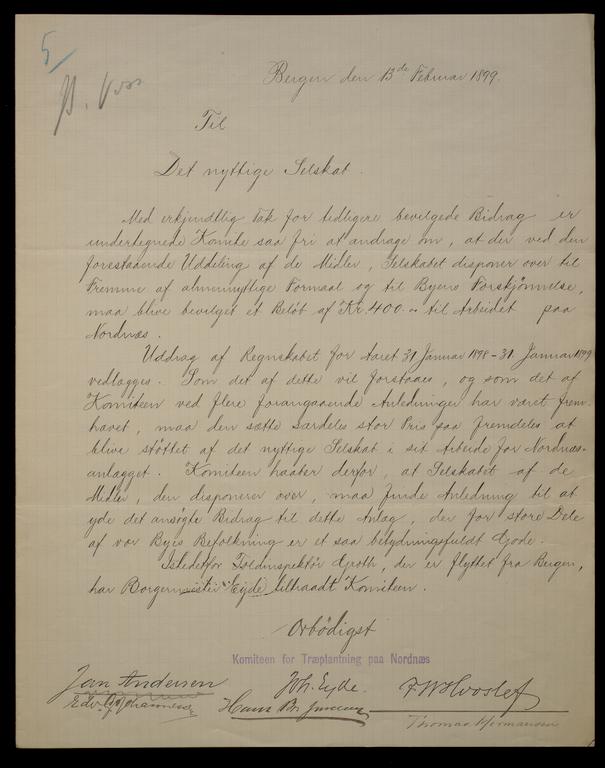 5
Bergen den 13de Februar 1899.
Til
Det nyttige Selskab.
Med erkjendtlig Tak for tidligere bevilgede Bidrag er
undertegnede Komite saa fri at andrage om, at der ved den
forestaaende Uddeling af de Midler, Selskabet disponer over til
Fremme af almennyttige Formaal og til Byens Forskjønnelse,
maa blive bevilget et Beløb af Kr. 400.- til Arbeidet paa
Nordnæs.
Uddrag af Regnskabet for Aaret 31 Januar 1898 - 31 Januar 1899
vedlægges. Som det af dette vil forstaaes, og som det af
Komiteen ved flere foregaaende Anledninger har været frem-
hævet, maa den sætte særdeles stor Pris paa fremdeles at
blive støttet af det nyttige Selskab i sit Arbeide for Nordnæs-
anlægget. Komiteen haaber derfor, at Selskabet af de
Midler, den disponerer over, maa finde Anledning til at
yde det ansøgte Bidrag til dette Anlæg, der for store Dele
af vor Byes Befolkning er et saa betydningsfuldt Gode.
Istedetfor Toldinspektør Groth, der er flyttet fra Bergen,
har Borgermester Eyde tiltraadt Komiteen.
Ærbødigst
Komiteen for Træplantning paa Nordnæs
Jan Andersen Joh. Eyde. F W Hvoslef
Edv. G. Johannesen Hans Br. Thomas Hermansen